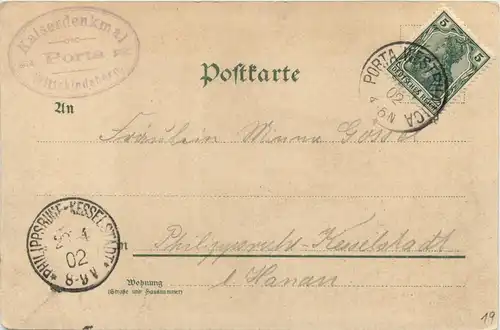 Kaiserdenkmal
Porta
Wittekindsberg
Postkarte
5
DEUTSCHES REICH
PORTA WESTFALICA
02
4-5N
An
Fräulein Minna Gossel
PHILIPPSRUHE-KESSELSTADT
4
02
8-9 V
in
Philippsruhe-Kesselstadt
b/Hanau
Wohnung
(Straße und Hausnummer)
19